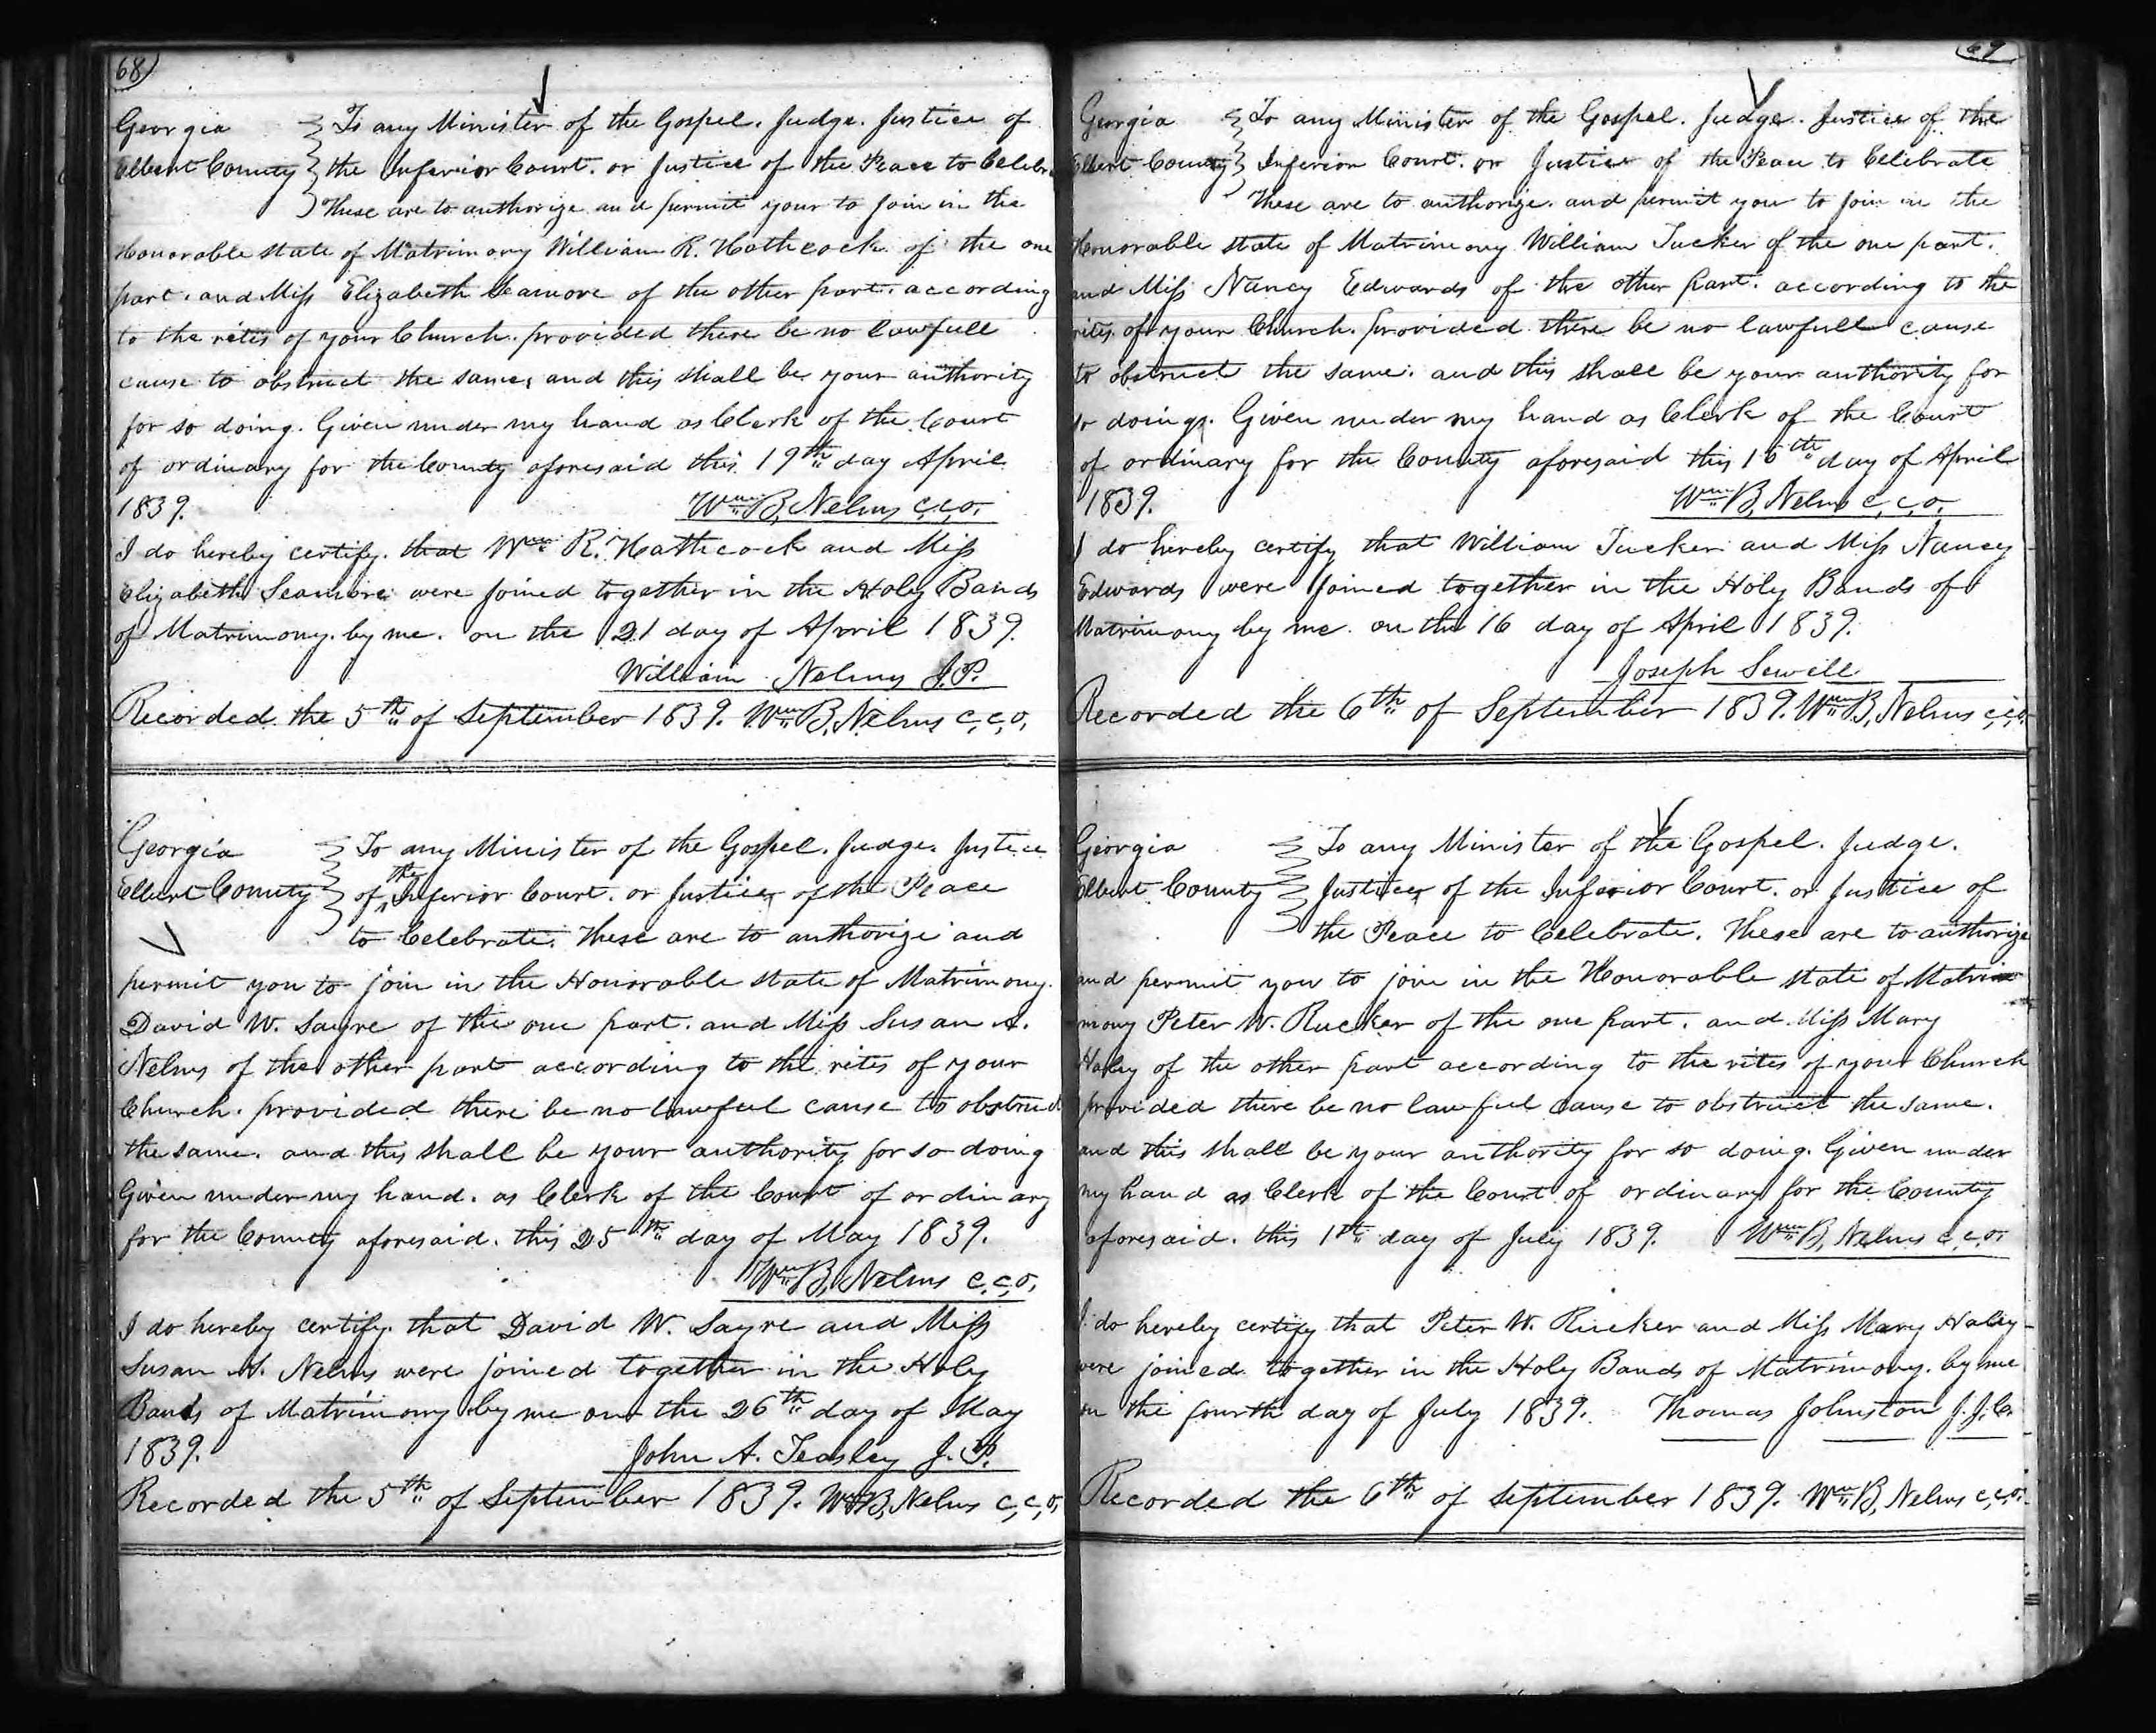 68)
Georgia } To any Minister of the Gospel. Judge. Justice of
Elbert County } the Inferior Court. or Justice of the Peace to Celebr
These are to authorize and permit your to join in the
Honorable state of Matrimony William R. Hathcock of the one
part. and Miss Elizabeth Seamore of the other part. according
to the rites of your Church. provided there be no lawfull
cause to obstruct the same, and this shall be your authority
for so doing. Given under my hand as Clerk of the Court
of ordinary for the County aforesaid this 19th day April
1839. Wm B, Nelms c,c,o,
I do hereby certify. that Wm R. Hathcock and Miss
Elizabeth Seamore were joined together in the Holy Bands
of Matrimony. by me. on the 21 day of April 1839.
William Nelms J.P.
Recorded the 5th of September 1839. Wm B, Nelms c,c,o,
Georgia } To any Minister of the Gospel. Judge. Justice
Elbert County } of the Inferior Court. or Justice of the Peace
to Celebrate. These are to authorize and
permit you to join in the Honorable state of Matrimony.
David W. Sayre of the one part. and Miss Susan A.
Nelms of the other part according to the rites of your
Church. provided there be no lawful cause to obstruct
the same. and this shall be your authority for so doing
Given under my hand. as Clerk of the Court of ordinary
for the County aforesaid. this 25th day of May 1839.
Wm B, Nelms c,c,o,
I do hereby certify. that David W. Sayre and Miss
Susan A. Nelms were joined together in the Holy
Bands of Matrimony by me on the 26th day of May
1839. John A. Teasley J.P.
Recorded the 5th of September 1839. Wm B, Nelms c,c,o,
69
Georgia } To any Minister of the Gospel. Judge. Justice of the
Elbert County } Inferior Court. or Justice of the Peace to Celebrate
These are to authorize. and permit you to join in the
Honorable state of Matrimony William Tucker of the one part.
and Miss Nancy Edwards of the other part. according to the
rites of your Church. provided there be no lawfull cause
to obstruct the same. and this shall be your authority for
so doing. Given under my hand as Clerk of the Court
of ordinary for the County aforesaid this 16th day of April
1839. Wm B, Nelms c,c,o.
I do hereby certify that William Tucker and Miss Nancy
Edwards were joined together in the Holy Bands of
Matrimony by me. on the 16 day of April 1839.
Joseph Sewell
Recorded the 6th of September 1839. Wm B, Nelms c,c,o.
Georgia } To any Minister of the Gospel. Judge.
Elbert County } Justice of the Inferior Court. or Justice of
the Peace to Celebrate. These are to authorize
and permit you to join in the Honorable state of Matri
mony Peter W. Rucker of the one part. and Miss Mary
Haley of the other part according to the rites of your Church
provided there be no lawful cause to obstruct the same.
and this shall be your authority for so doing. Given under
my hand as Clerk of the Court of ordinary for the County
aforesaid. this 1st day of July 1839. Wm B, Nelms c,c,o,
I do hereby certify that Peter W. Rucker and Miss Mary Haley
were joined together in the Holy Bands of Matrimony. by me
on the fourth day of July 1839. Thomas Johnston J.J.C.
Recorded the 6th of September 1839. Wm B, Nelms c,c,o.